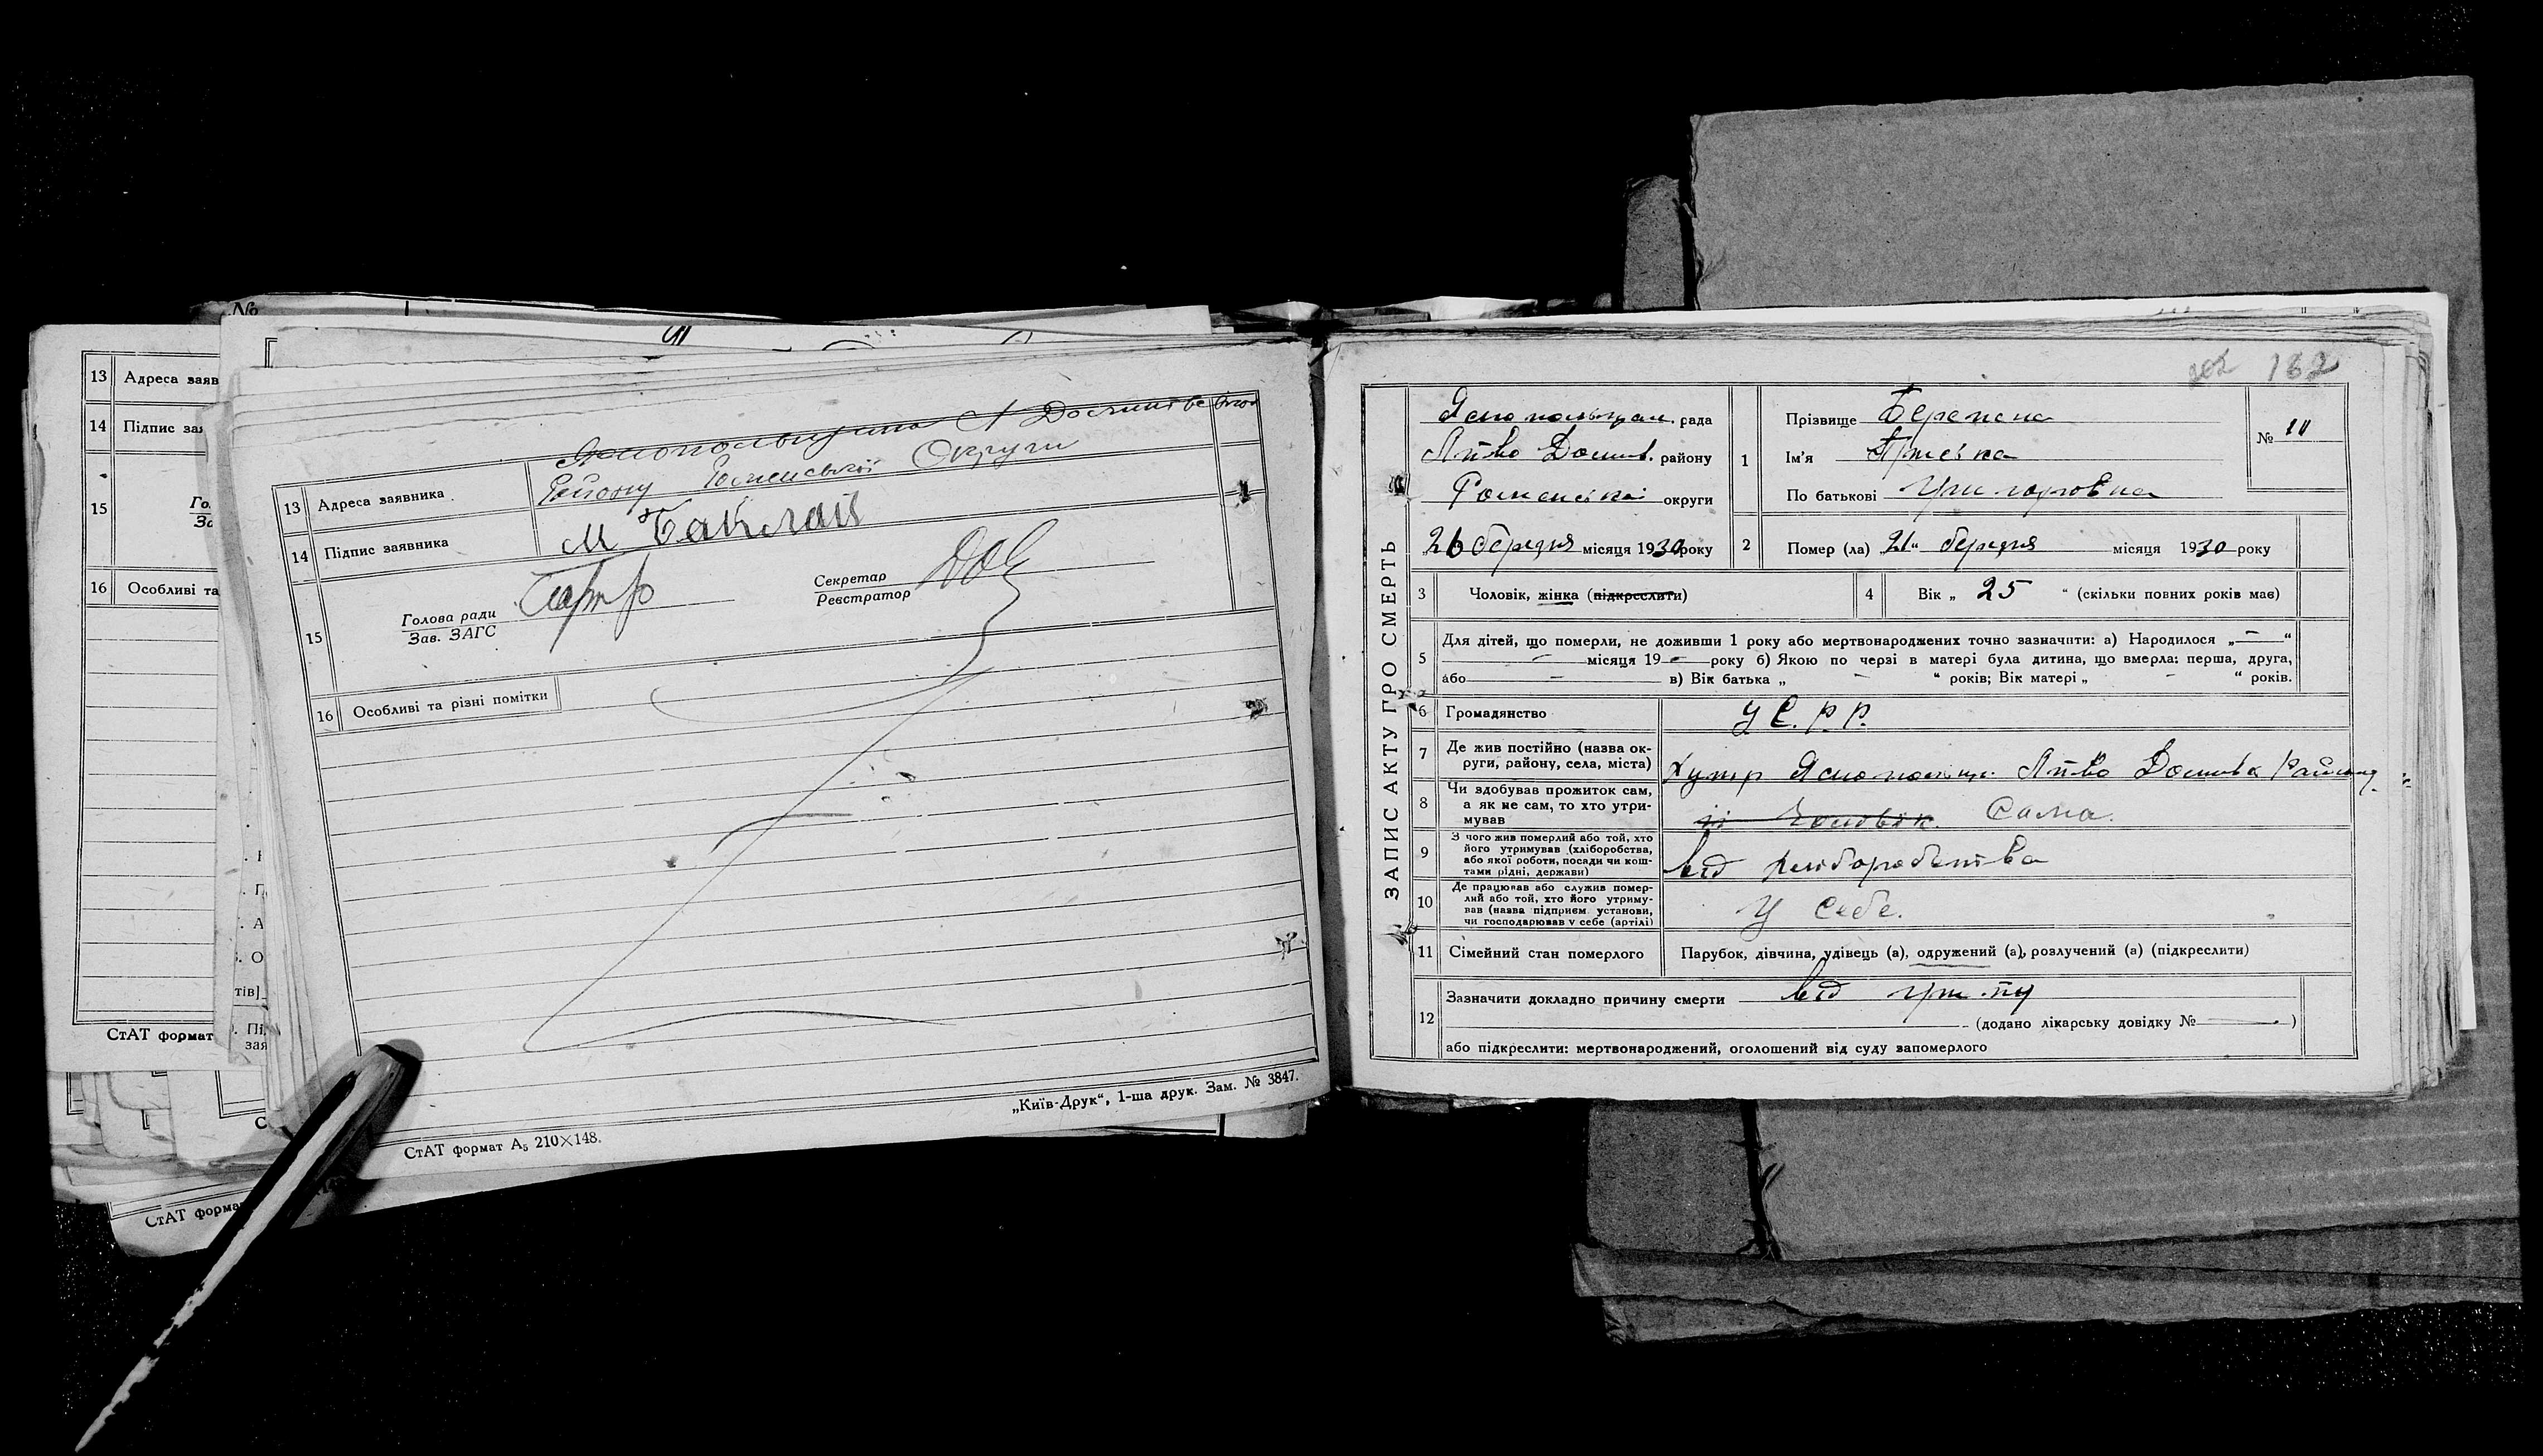 №
13 Адреса заяв
14 Підпис зая
15 Го
За
16 Особливі та
СтАТ формат
СтАТ форма
Яснопольщина Л Долинське
13 Адреса заявника Району Роменської Округи
14 Підпис заявника М Баклан
15 Голова ради
Зав. ЗАГС
Секретар
Реєстратор
16 Особливі та різні помітки
СтАТ формат А₅ 210×148.
„Київ-Друк“, 1-ша друк. Зам. № 3847.
162
ЗАПИС АКТУ ПРО СМЕРТЬ
рада
району
Роменської округи
26 березня місяця 1930 року
1 Прізвище
Ім'я
По батькові Григоровна
№
2 Помер (ла) „21“ березня місяця 1930 року
3 Чоловік, жінка (підкреслити)
4 Вік „ 25 “ (скільки повних років мав)
5 Для дітей, що померли, не доживши 1 року або мертвонароджених точно зазначити: а) Народилося „—“
— місяця 19 — року б) Якою по черзі в матері була дитина, що вмерла: перша, друга,
або — в) Вік батька „ — “ років; Вік матері „ - “ років.
6 Громадянство У С. Р. Р.
7 Де жив постійно (назва ок-
руги, району, села, міста) Хутір
8 Чи здобував прожиток сам,
а як не сам, то хто утри-
мував її чоловік. Сама.
9 З чого жив померлий або той, хто
його утримував (хліборобства,
або якої роботи, посади чи кош-
тами рідні, держави) від хліборобства
10 Де працював або служив помер-
лий або той, хто його утриму-
вав (назва підприєм. установи,
чи господарював у себе (артілі) У себе.
11 Сімейний стан померлого Парубок, дівчина, удівець (а), одружений (а), розлучений (а) (підкреслити)
12 Зазначити докладно причину смерти від грипу
(додано лікарську довідку № — )
або підкреслити: мертвонароджений, оголошений від суду запомерлого